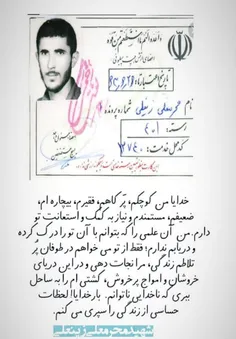 نام محرمعلی زینلی شماره پرونده
خدایا من کوچکم، پرگناهم، فقیرم، بیچاره ام،
ضعیفم، مستمندم و نیاز به کمک و استعانت تو
دارم. من آن علمی را که بتوانم با آن تو را درک کرده
و دریابم ندارم؛ فقط از تو می خواهم در طوفان پر
تلاطم زندگی، مرا نجات دهی و در این دریای
خروشان و امواج پرخروش، کشتی ام را به ساحل
ببری که ناخدایی ناتوانم. بارخدایا! لحظات
حساسی از زندگی را سپری می کنم.
شهید محرمعلی زینعلی